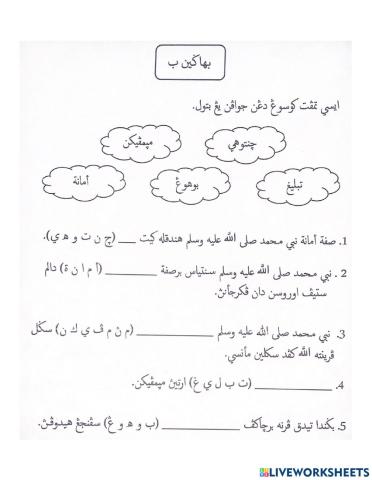 بهاݢين ب
ايسي تمڤت كوسوڠ دڠن جواڤن يڠ بتول.
مڽمڤيكن
چنتوهي
أمانة
بوهوڠ
تبليغ
1. صفة أمانة نبي محمد صلى الله عليه وسلم هندقله كيت ___ (چ ن ت و ه ي).
2. نبي محمد صلى الله عليه وسلم سنتياس برصفة ________ (أ م ا ن ة) دالم
ستياڤ اوروسن دان ڤكرجأنڽ.
3. نبي محمد صلى الله عليه وسلم ____________ (م ڽ م ڤ ي ك ن) سݢل
ڤرينته الله كڤد سكلين مأنسي.
4. ____________ (ت ب ل ي غ) ارتيڽ مڽمڤيكن.
5. بݢيندا تيدق ڤرنه برچاكڤ ____________ (ب و ه و ڠ) سڤنجڠ هيدوڤڽ.
LIVEWORKSHEETS